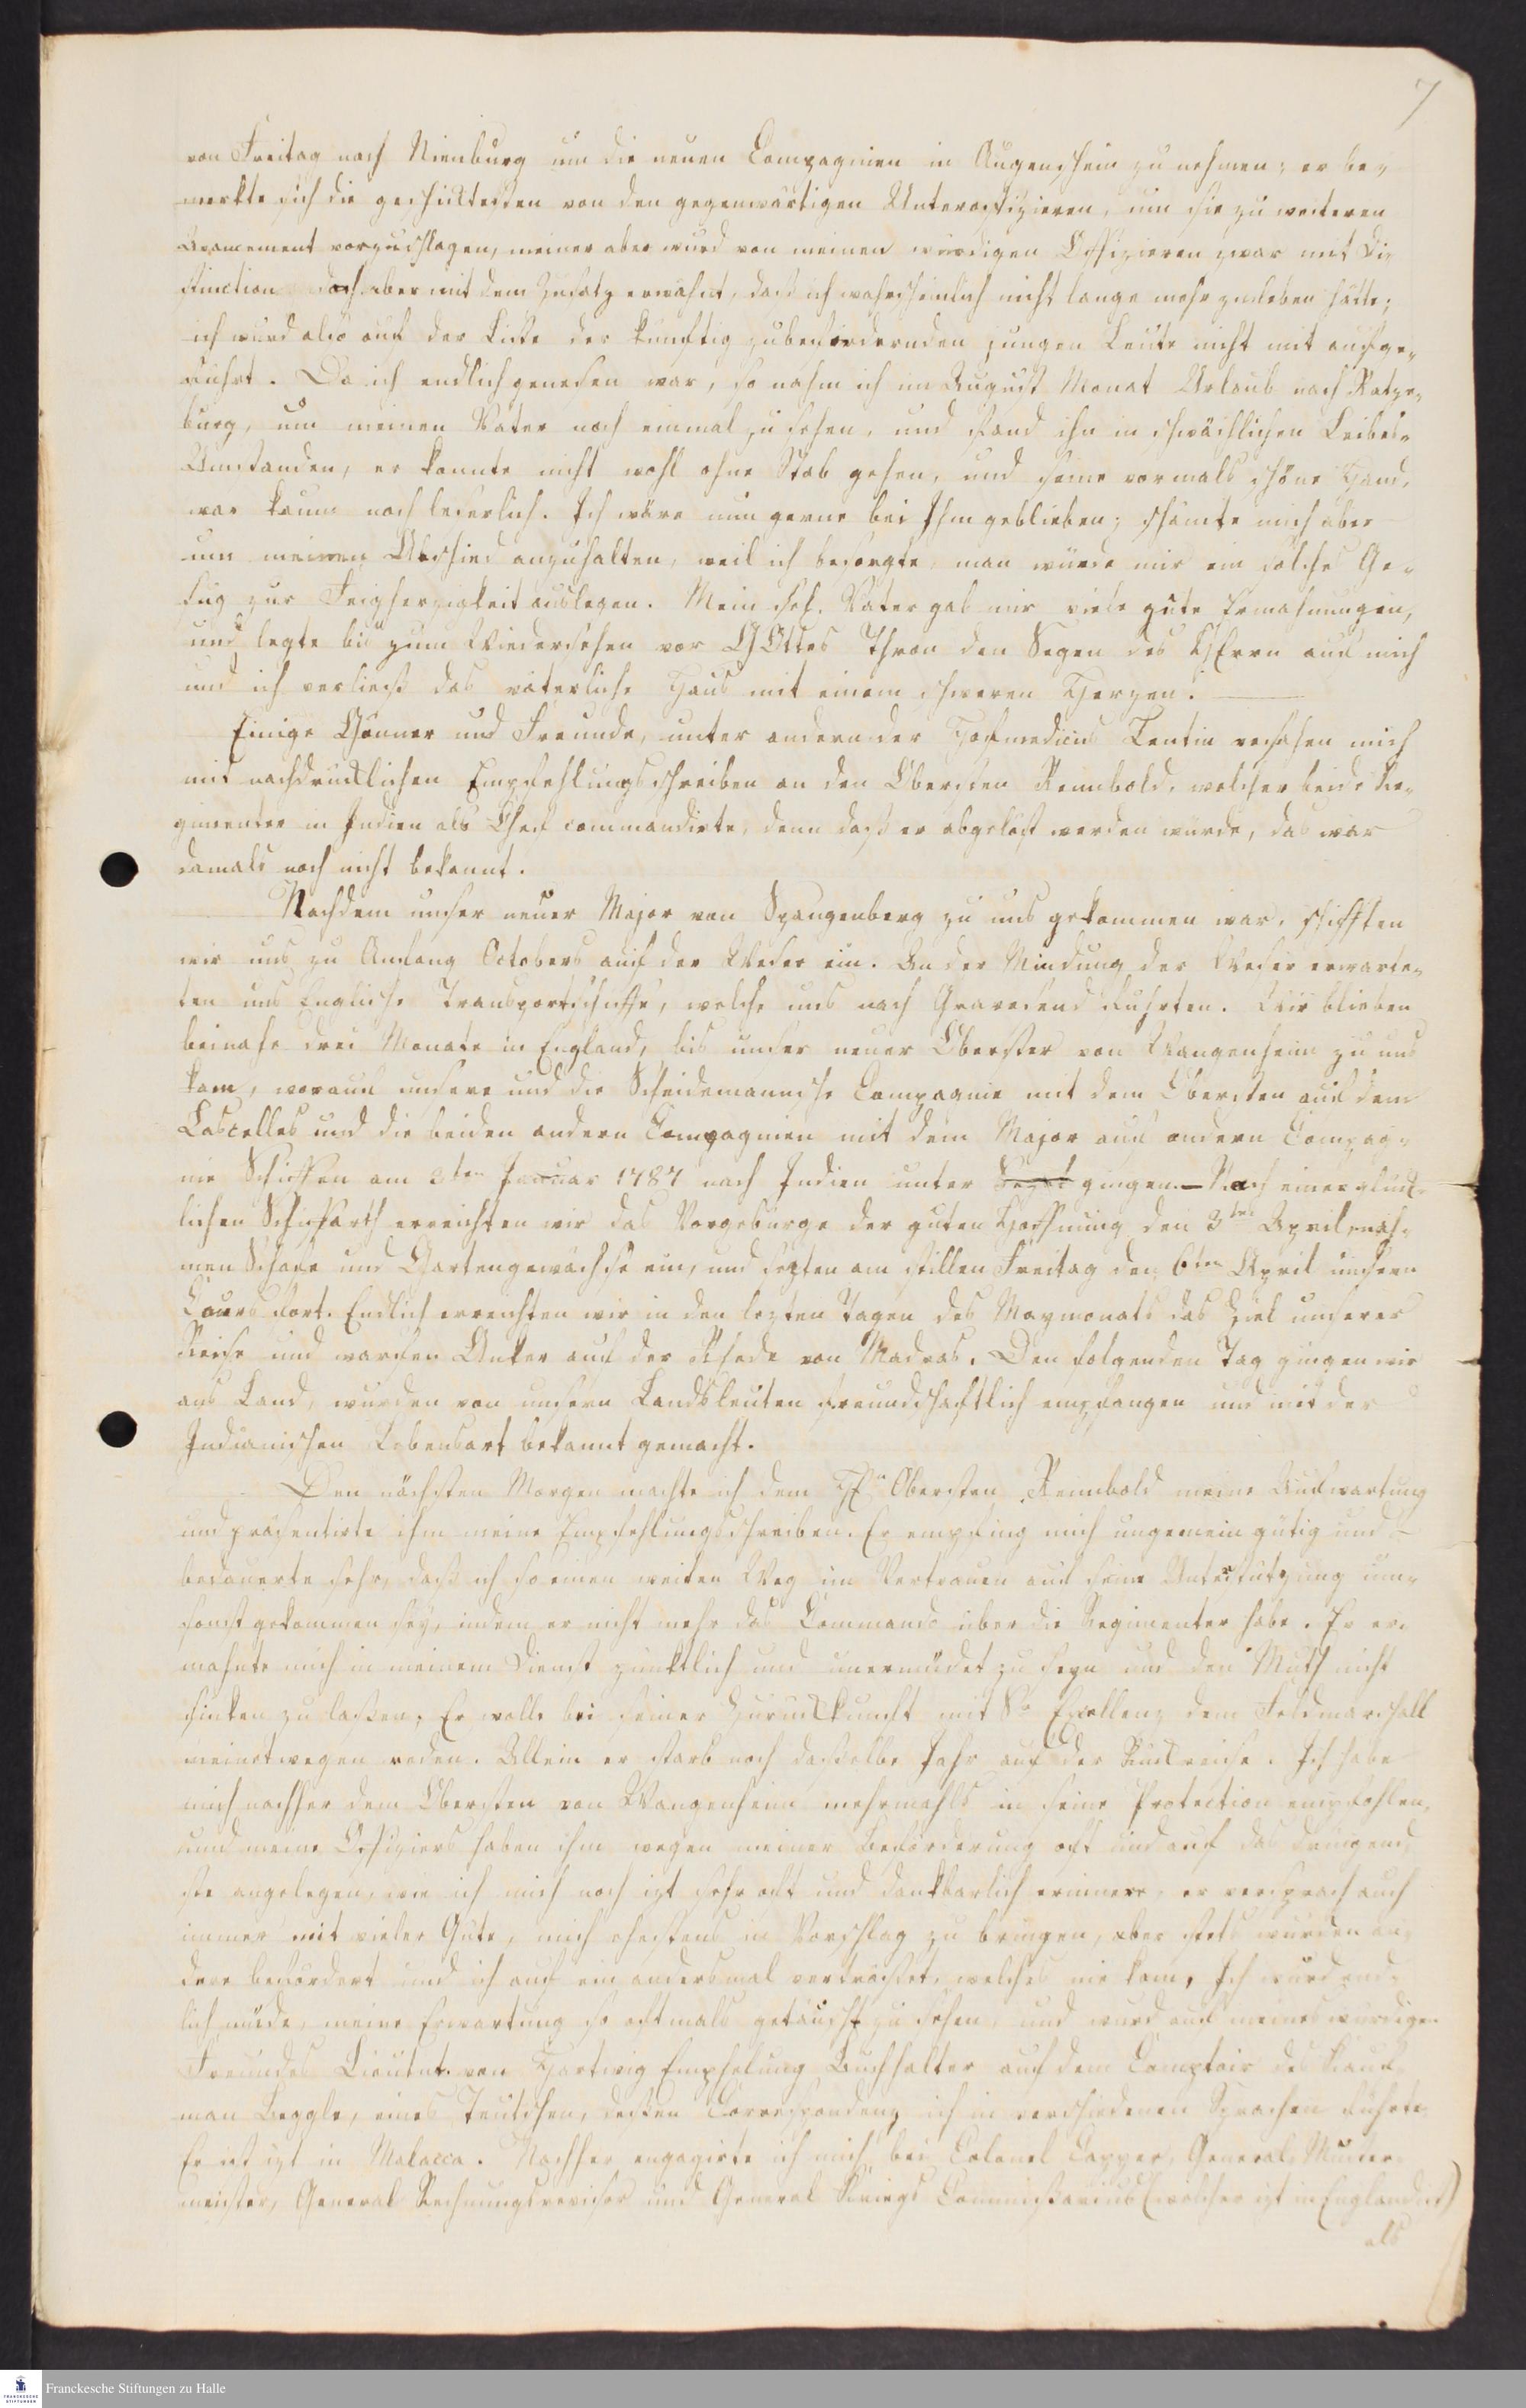 7
von Freitag nach Nienburg um die neuen Compagnien in Augenschein zu nehmen; er be-
merkte sich die geschicktesten von den gegenwärtigen Unteroffizieren, um sie zu weiteren
Avancement vorzuschlagen, meiner aber wurd von meinen würdigen Offizieren zwar mit Di-
stinction doch aber mit dem Zusatz erwähnt, daß ich wahrscheinlich nicht lange mehr zu leben hätte;
ich wurd also auf der Liste der künftig zubefördernden jungen Leute nicht mit aufge-
führt. Da ich endlich genesen war, so nahm ich im August Monat Urlaub nach Ratze-
burg, um meinen Vater noch einmal zu sehen, und fand ihn in schwächlichen Leibes-
Umständen, er konnte nicht wohl ohne Stab gehen, und seine vormals schöne Hand,
war kaum noch leserlich. Ich wäre nun gerne bei Ihm geblieben; schämte mich aber
um meinen Abschied anzuhalten, weil ich besorgte, man würde mir ein solches Ge-
such zur Feigherzigkeit auslegen. Mein sel. Vater gab mir viele gute Ermahnungen,
und legte bis zum Wiedersehen vor GOttes Thron den Segen des HErrn auf mich
und ich verließ das väterliche Haus mit einem schweren Herzen.
Einige Gönner und Freunde, unter andern der Hofmedicus Lentin versahen mich
mit nachdrücklichen Empfehlungsschreiben an den Obersten Reinbold, welcher beide Re-
gimenter in Indien als Chef commandirte, denn daß er abgelöst werden würde, das war
damals noch nicht bekannt.
Nachdem unser neuer Major von Spangenberg zu uns gekommen war, schifften
wir uns zu Anfang Octobers auf der Weser ein. An der Mündung der Weser erwarte-
ten uns Englische Transportschiffe, welche uns nach Gravesend führten. Wir blieben
beinahe drei Monate in England, bis unser neuer Oberster von Wangenheim zu uns
kam, worauf unsere und die Scheidemannsche Compagnie mit dem Obersten auf dem
Lascelles und die beiden andern Compagnien mit dem Major auf andern Compag-
nie Schiffen am 3ten Januar 1787 nach Indien unter Segel gingen. – Nach einer glück-
lichen Schiffarth erreichten wir das Vorgebürge der guten Hoffnung den 3ten April, nah-
men Schafe und Gartengewächse ein, und sezten am stillen Freitag den 6ten April unsern
Cours fort. Endlich erreichten wir in den lezten Tagen des Maymonats das Ziel unserer
Reise und warfen Anker auf der Rhede von Madras. Den folgenden Tag gingen wir
ans Land, wurden von unsern Landsleuten freundschaftlich empfangen und mit der
Indianischen Lebensart bekannt gemacht.
Den nächsten Morgen machte ich dem Hn Obersten Reinbold meine Aufwartung
und präsentirte ihm meine Empfehlungsschreiben. Er empfing mich ungemein gütig und
bedauerte sehr, daß ich so einen weiten Weg im Vertrauen auf seine Unterstützung um-
sonst gekommen sey, indem er nicht mehr das Commando über die Regimenter habe. Er er-
mahnte mich in meinem Dienst pünktlich und unermüdet zu seyn und den Muth nicht
sinken zu laßen. Er wolle bei seiner Zurückkunft mit Sr Exellenz dem Feldmarschall
meinetwegen reden. Allein er starb noch dasselbe Jahr auf der Rückreise. Ich habe
mich nachher dem Obersten von Wangenheim mehrmahls in seine Protection empfohlen,
und meine Offiziers haben ihm wegen meiner Beförderung oft und auf das dringend-
ste angelegen, wie ich mich noch izt sehr oft und dankbarlich erinnere, er versprach auch
immer mit vieler Güte, mich ehestens in Vorschlag zu bringen, aber stets wurden an-
dere befördert und ich auf ein andersmal vertröstet, welches nie kam. Ich wurd end-
lich müde, meine Erwartung so oftmals getäuscht zu sehen, und wurd auf meines würdigen
Freundes Lieutnt. von Hartwig Empfelung Buchhalter auf dem Comptoir des Kauf-
man Beggle, eines Teutschen, deßen Correspondenz ich in verschiedenen Sprachen führte.
Er ist izt in Malacca. Nachher engagirte ich mich bei Colonel Capper, General Muster-
meister, General Rechnungsrevisor und General Kriegs Commissarius (welcher izt in England ist)
als
Franckesche Stiftungen zu Halle